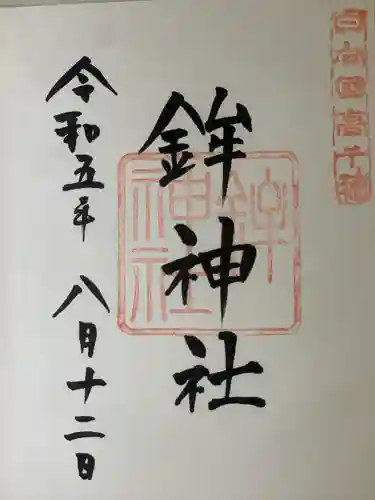 日向国高千穂
鉾神社
鉾神社
令和五年 八月十二日